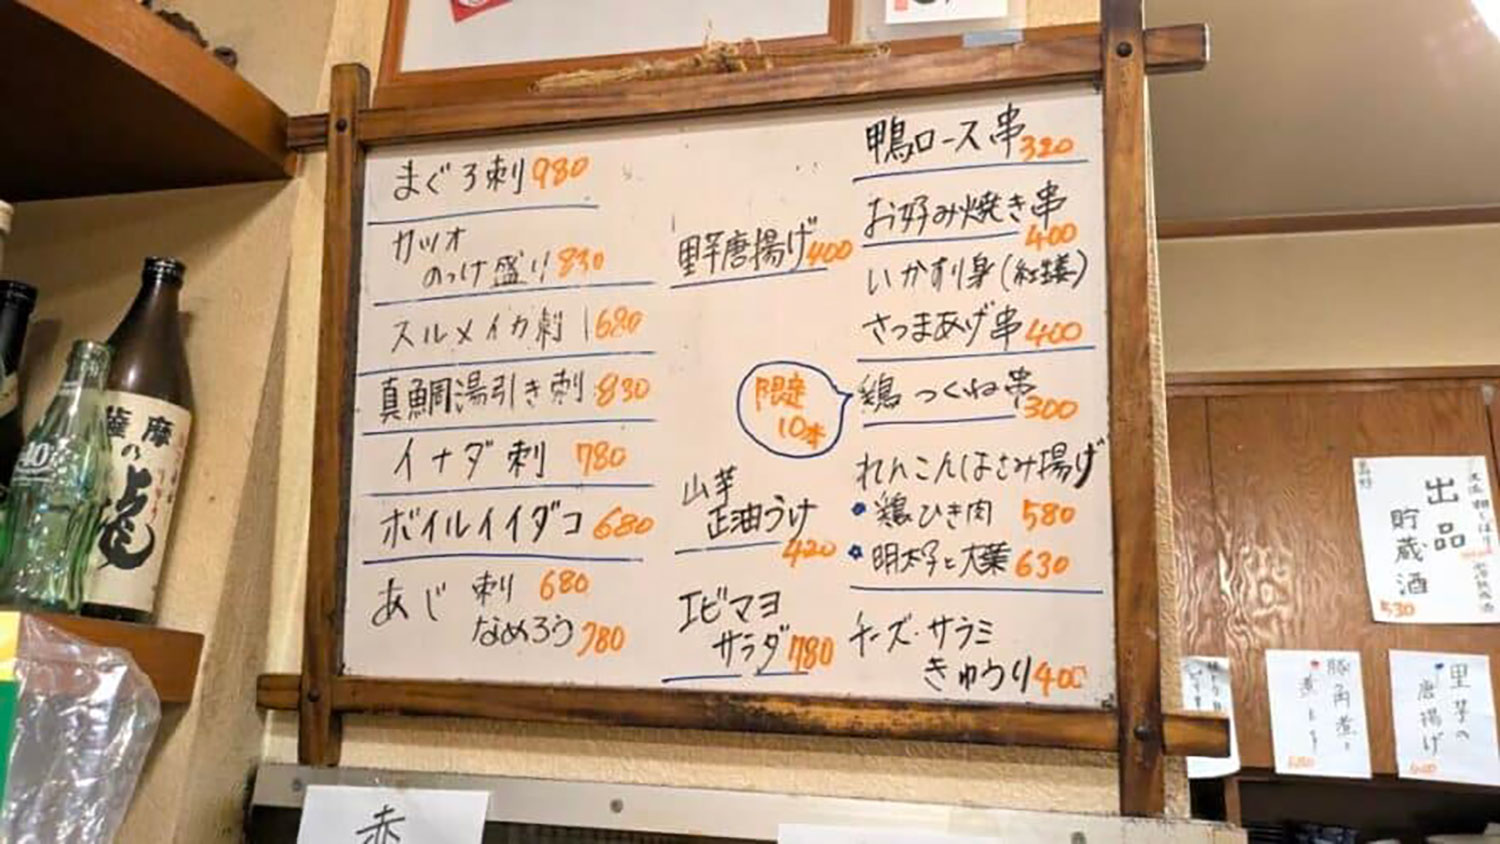 まぐろ刺 980
カツオ
のっけ盛り 830
スルメイカ刺 680
真鯛湯引き刺 830
イナダ刺 780
ボイルイイダコ 680
あじ 刺 680
なめろう 780
里芋唐揚げ 400
限定
10本
山芋
正油づけ
420
エビマヨ
サラダ 780
鴨ロース串 320
お好み焼き串
400
いかすり身(紅生姜)
さつまあげ串 400
鶏つくね串
300
れんこんはさみ揚げ
鶏ひき肉 580
明太子と大葉 630
チーズ・サラミ
きゅうり 400
薩摩
の
龍
出品
貯蔵酒
530
豚角煮
里芋の
唐揚げ
赤